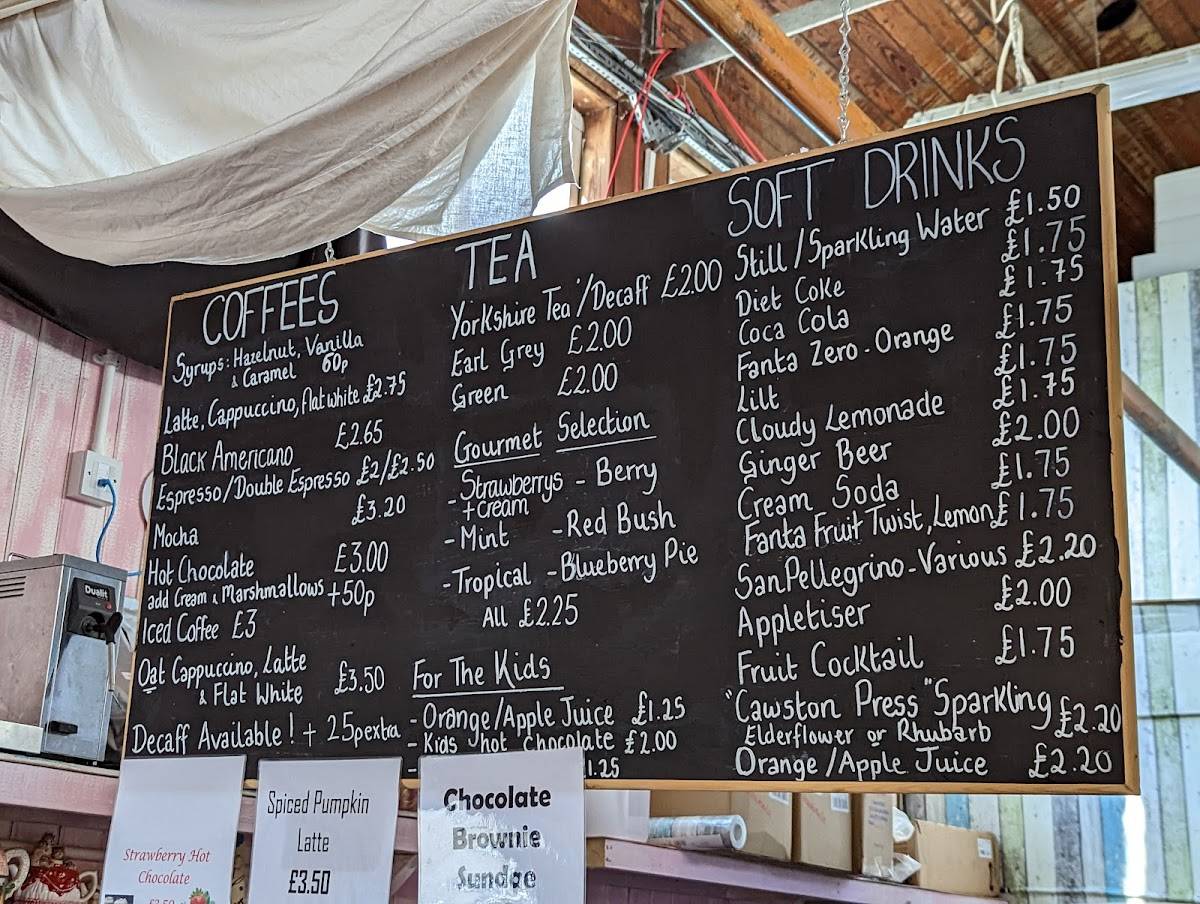 COFFEES
Syrups: Hazelnut, Vanilla
& Caramel 60p
Latte, Cappuccino, flat white £2.75
Black Americano £2.65
Espresso/Double Espresso £2/£2.50
Mocha £3.20
Hot Chocolate £3.00
add Cream & Marshmallows +50p
Iced Coffee £3
Oat Cappuccino, Latte
& Flat White £3.50
Decaff Available! + 25p extra
TEA
Yorkshire Tea/Decaff £2.00
Earl Grey £2.00
Green £2.00
Gourmet Selection
- Strawberrys - Berry
+ cream
- Mint - Red Bush
- Tropical - Blueberry Pie
All £2.25
For The Kids
- Orange/Apple Juice £1.25
- Kids hot chocolate £2.00
1.25
SOFT DRINKS
Still/Sparkling Water £1.50
Diet Coke £1.75
Coca Cola £1.75
Fanta Zero - Orange £1.75
Lilt £1.75
Cloudy Lemonade £1.75
Ginger Beer £2.00
Cream Soda £1.75
Fanta Fruit Twist, Lemon £1.75
SanPellegrino - Various £2.20
Appletiser £2.00
Fruit Cocktail £1.75
"Cawston Press" Sparkling
Elderflower or Rhubarb £2.20
Orange/Apple Juice £2.20
Dualit
Strawberry Hot
Chocolate
£3.50
Spiced Pumpkin
Latte
£3.50
Chocolate
Brownie
Sundae